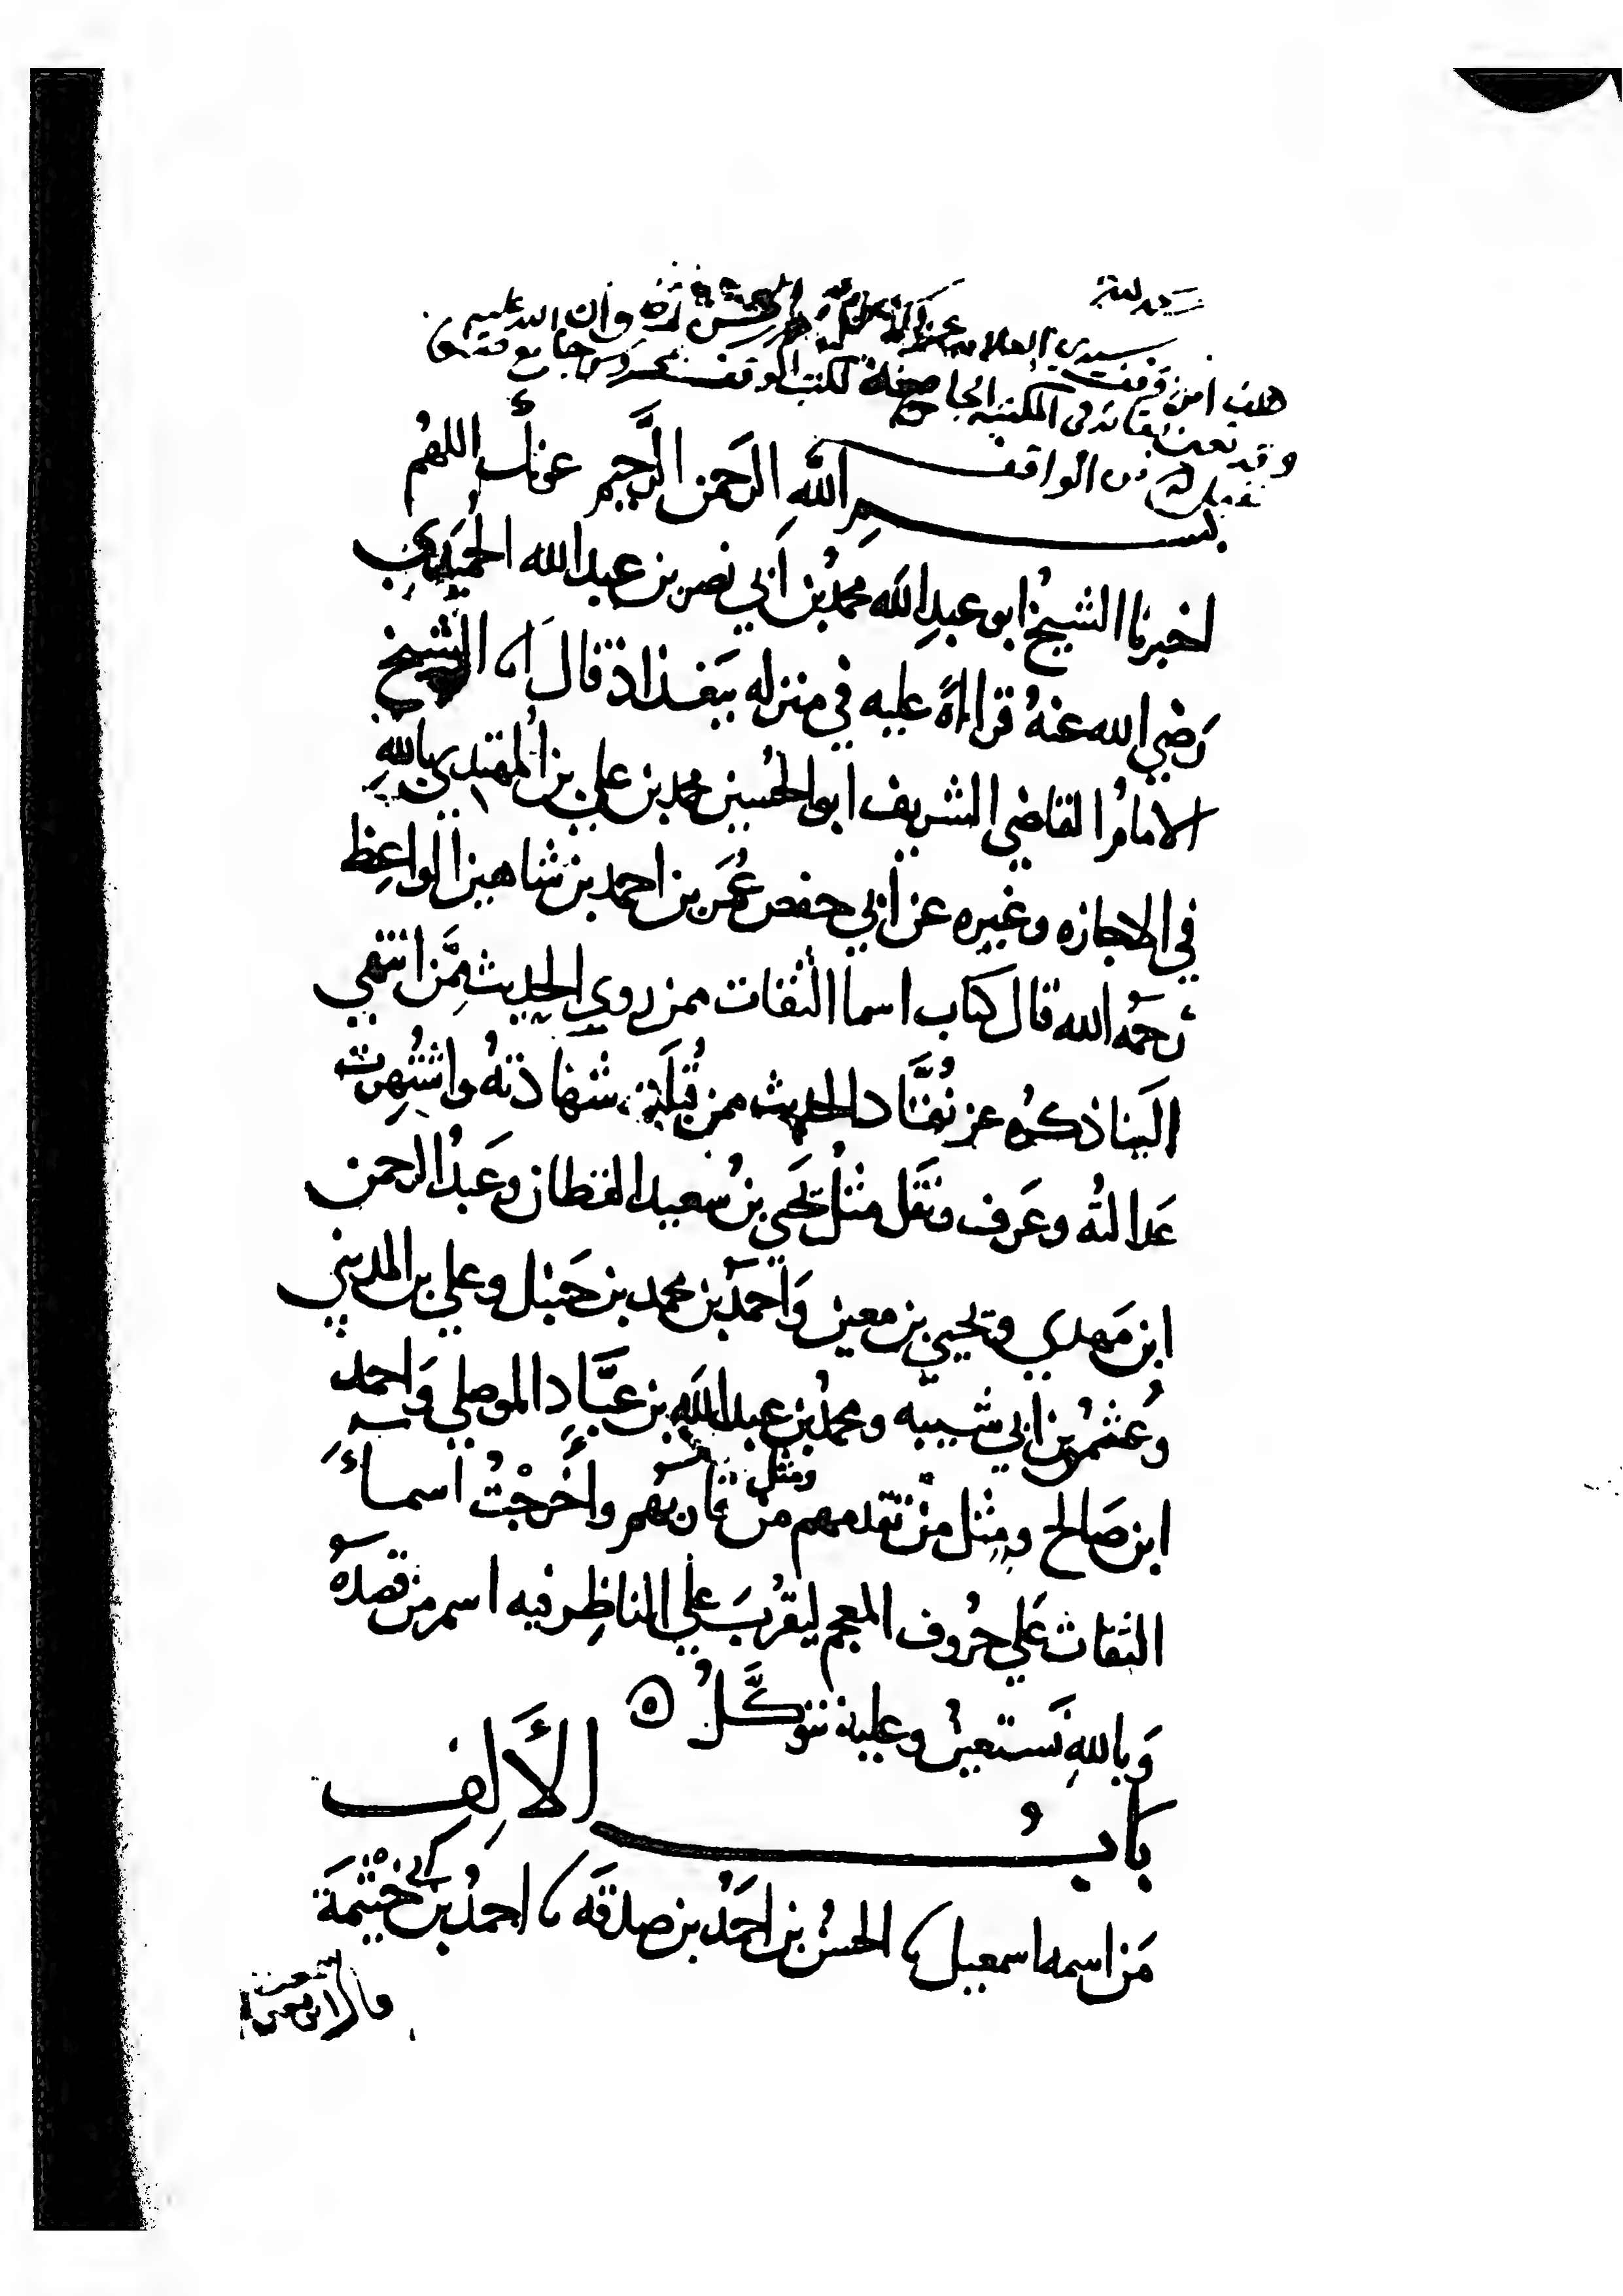 الحمد لله
هذه من وقف سيدي العلامه وان الله عليه
وقد نقلت في المكتبه الجامعة لكتب الوقف بمحروس جامع
من الواقف
بسم الله الرحمن الرحيم عونك اللهم
اخبرنا الشيخ ابو عبدِ الله محمدُ بن أبي نصر بن عبد الله الحُمَيدي
رَضي الله عنهُ قراءةً عليه في منزله ببَغداذ قال انا الشيخ
الامامُ القاضي الشريف ابو الحُسين محمد بن علي بن المهتدي باللهِ
في الاجازه وغيره عن أبي حفص عُمَر بن احمد بن شاهين الواعِظ
رَحمهُ الله قال كتاب اسما الثقات ممن روي الحديث مِمَّن انتهي
الَينا ذكرُه عن نُقَّاد الحديث ممن قُبلَت شهادتهُ واشتُهِرت
عَدالتُه وعَرف ونَقل مثلُ يَحيى بنُ سعيد القطان وعَبدُ الرحمن
ابن مَهدي ويَحيي بن معين وَأحمدُ بن محمد بن حَنبل وعلي بن المديني
وعُثمنُ بن ابي شَيبه ومحمدُ بن عبد اللهِ بن عمَّارِ الموصلي وَاحمد
ابن صَالح ومِثل مَنْ تَقدمهم ومثل منْ كان بَعدهم وأَخرجْتُ اسماءَ
الثقات عَلي حُروف المعجم ليقرُبَ علي الناظِر فيه اسم من قَصدهُ
وَباللهِ نَستعينُ وعليه نتوكَّلُ ه
بابُ الأَلِف
مَن اسمه اسمعيل نا الحسنُ بن احمَدُ بن صدقَه نا احمدُ بن أبي خَيْثمَة
قال ابن معين